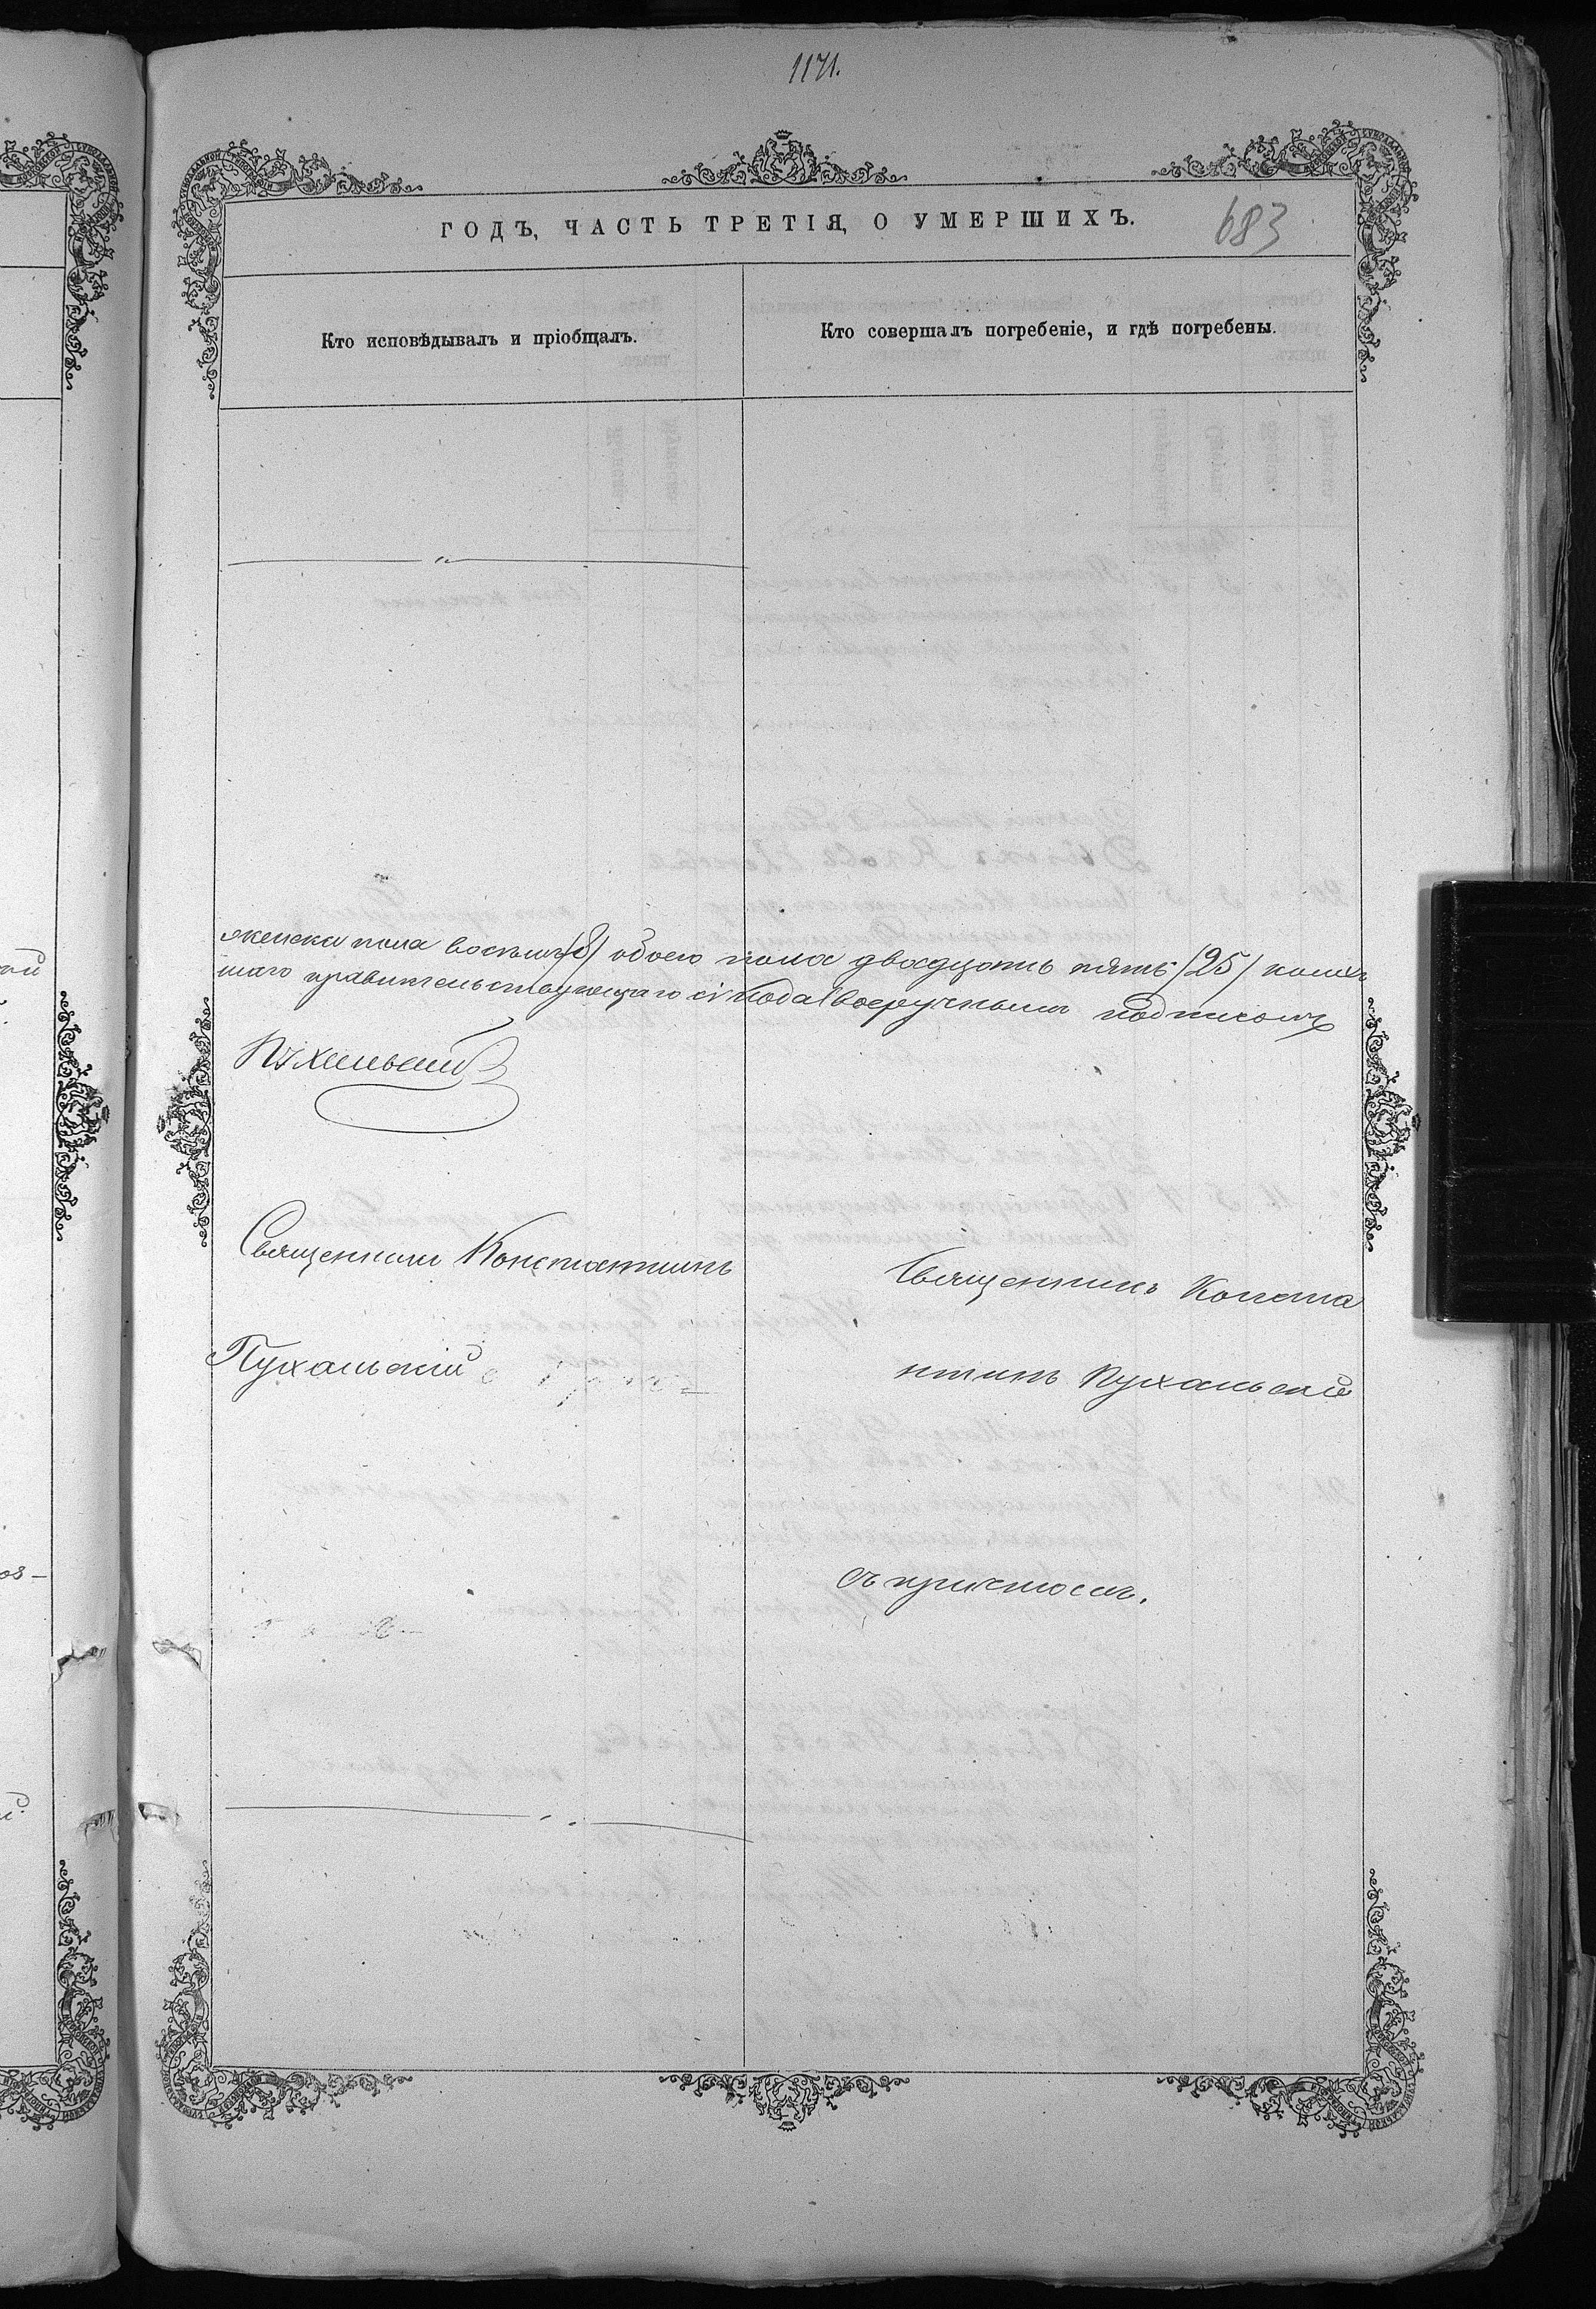 1171.
683
ГОДЪ, ЧАСТЬ ТРЕТІЯ, О УМЕРШИХЪ.
Кто исповѣдывалъ и пріобщалъ.
Кто совершалъ погребеніе, и гдѣ погребены.
женска пола восемь /8/ обоего пола двадцать пять /25/
шаго правительствующаго
подписомъ
Священникъ Константинъ
Пухальскій
Священникъ Конста
нтинъ Пухальскій
съ причтомъ.